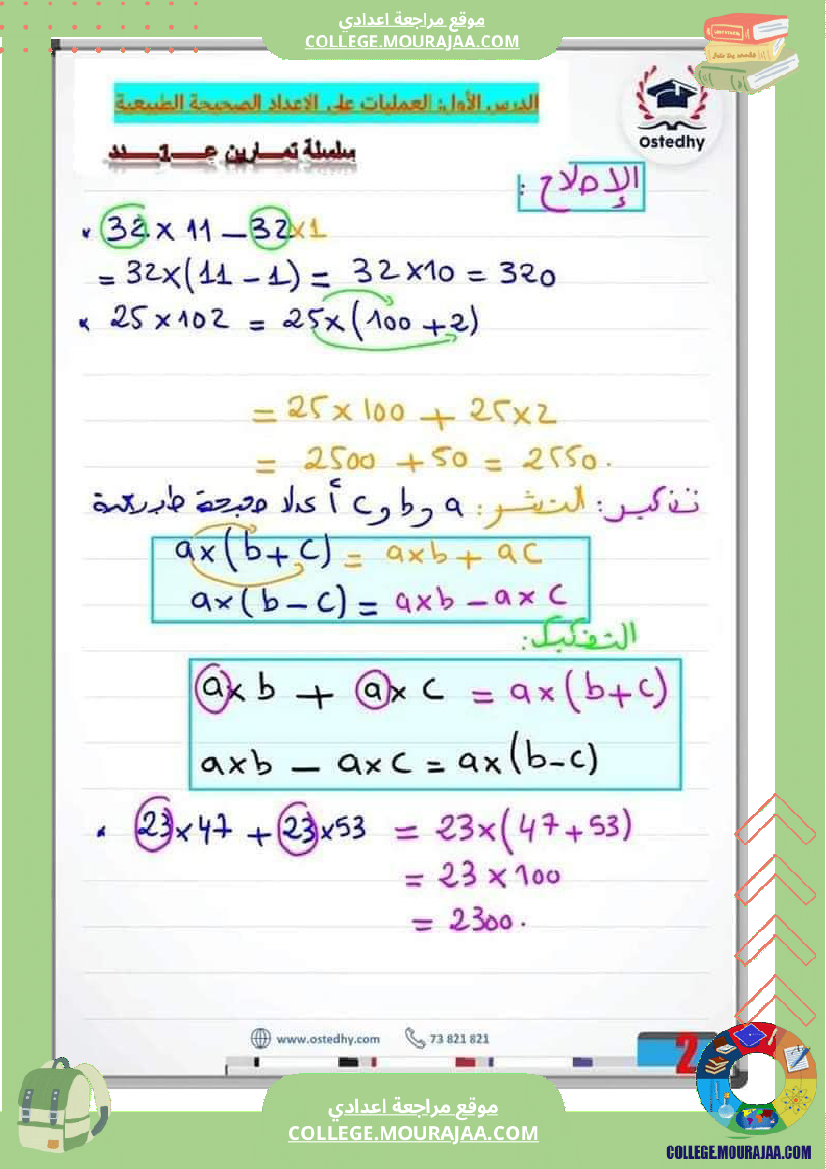 موقع مراجعة اعدادي
COLLEGE.MOURAJAA.COM
الدرس الأول: العمليات على الاعداد الصحيحة الطبيعية
سلسلة تمـــارين عـــ1ـــدد
Ostedhy
الإصلاح:
32 x 11 – 32 x 1
= 32x(11 – 1) = 32 x 10 = 320
25 x 102 = 25x(100 + 2)
= 25 x 100 + 25 x 2
= 2500 + 50 = 2550.
تذكير: النشر: a و b و c أعداد صحيحة طبيعية
ax(b+c) = axb + ac
ax(b–c) = axb – axc
التفكيك:
axb + axc = ax(b+c)
axb – axc = ax(b–c)
23x47 + 23x53 = 23x(47+53)
= 23 x 100
= 2300.
www.ostedhy.com 73 821 821
2
موقع مراجعة اعدادي
COLLEGE.MOURAJAA.COM
COLLEGE.MOURAJAA.COM